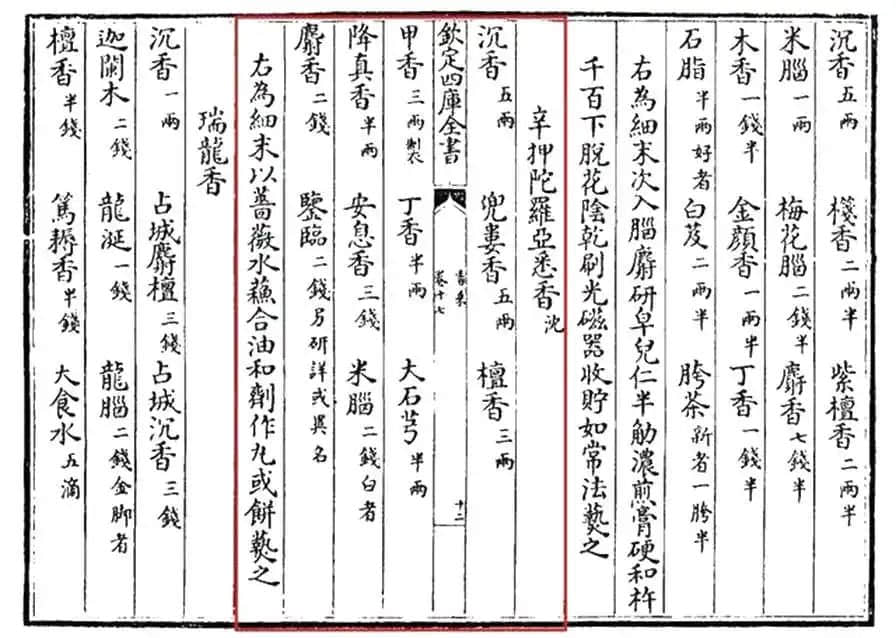 沉香五兩 棧香二兩半 紫檀香二兩半
米腦一兩 梅花腦二錢半 麝香七錢半
木香一錢半 金顔香一兩半 丁香一錢半
石脂半兩好者 白芨二兩半 胯茶新者一胯半
右為細末次入腦麝研皁兒仁半觔濃煎膏硬和杵
千百下脱花陰乾刷光磁器收貯如常法爇之
辛押陀羅亞悉香沈
沉香五兩 兜婁香五兩 檀香三兩
欽定四庫全書 香乘 卷十七 十二
甲香三兩製 丁香半兩 大石芎半兩
降真香半兩 安息香三錢 米腦二錢白者
麝香二錢 鑒臨二錢另研詳或異名
右為細末以薔薇水蘇合油和劑作丸或餅爇之
瑞龍香
沉香一兩 占城麝檀三錢 占城沉香三錢
迦闌木二錢 龍涎一錢 龍腦二錢金脚者
檀香半錢 篤耨香半錢 大食水五滴